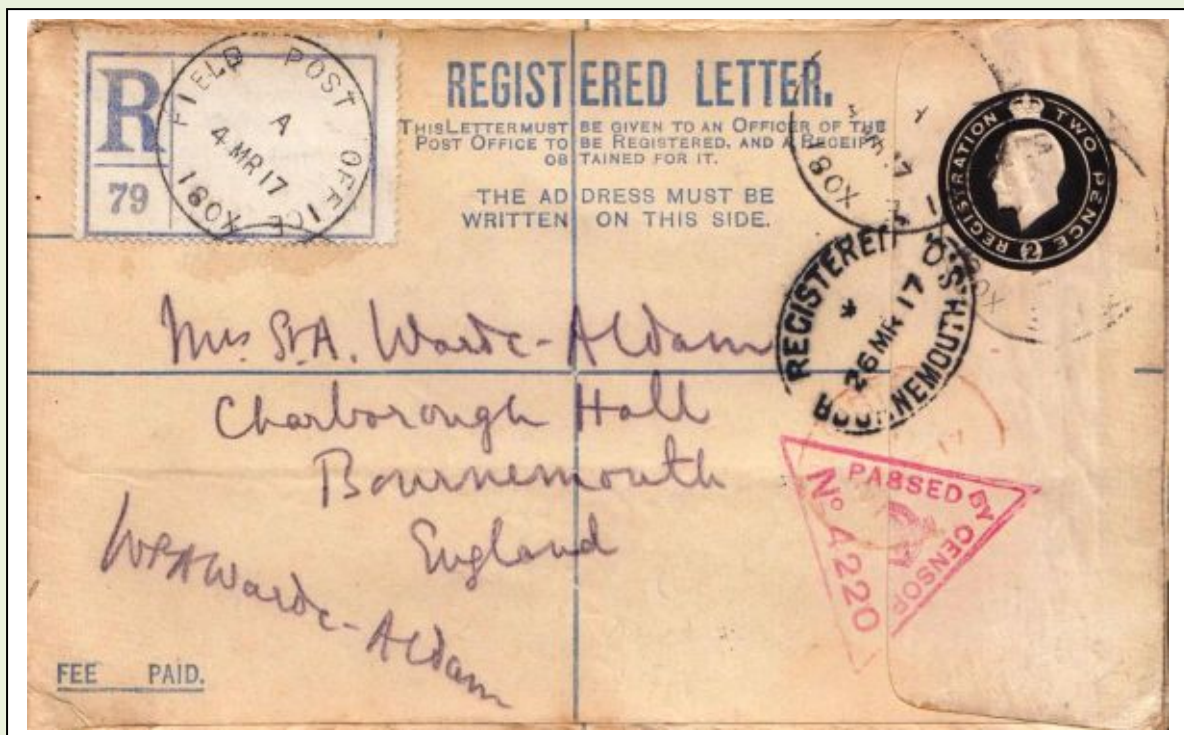 R
79
FIELD POST OFFICE
A
4 MR 17
X081
REGISTERED LETTER.
THIS LETTER MUST BE GIVEN TO AN OFFICER OF THE
POST OFFICE TO BE REGISTERED, AND A RECEIPT
OBTAINED FOR IT.
THE ADDRESS MUST BE
WRITTEN ON THIS SIDE.
REGISTRATION TWO PENCE
2
X08
REGISTERED
26 MR 17
BOURNEMOUTH
Mrs St. A. Warde-Aldam
Charborough Hall
Bournemouth
England
PASSED BY CENSOR
No 4220
WStAWarde-Aldam
FEE PAID.